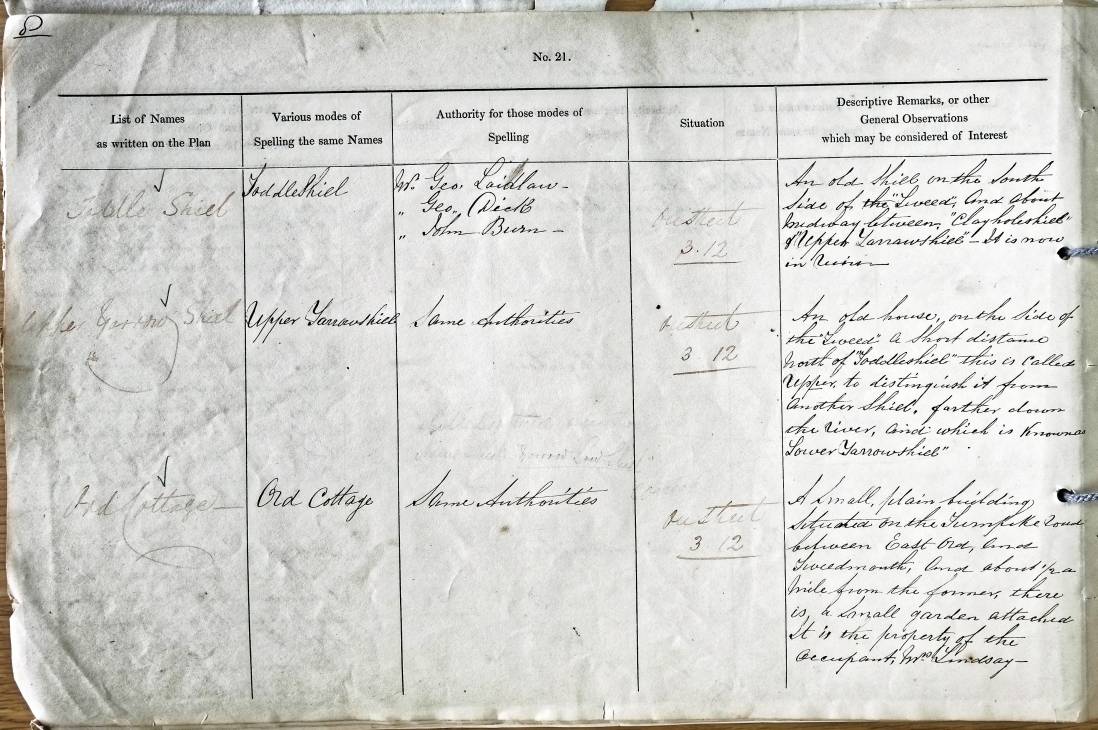 8
No. 21.
List of Names
as written on the Plan
Various modes of
Spelling the same Names
Authority for those modes of
Spelling
Situation
Descriptive Remarks, or other
General Observations
which may be considered of Interest
Toddle Shiel
Toddleshiel
Mr. Geo. Laidlaw -
" Geo. Dick
" John Burn -
On Sheet
3.12
An old Shill on the South
Side of the "Tweed", and about
Midway between, "Clayholeshiel"
& "Upper Yarrowshiel" - It is now
in
Upper Yarrow Shiel
Upper Yarrowshiel
Same Authorities
On Sheet
3 12
An old house, on the Side of
the "Tweed" a Short distance
North of "Toddleshiel" this is Called
Upper, to distinguish it from
another Shill, farther down
the river, and which is Known as
Lower Yarrowshiel"
Ord Cottage
Ord Cottage
Same Authorities
On Sheet
3 12
A Small, plain building
Situated on the Turnpike road
between East Ord, and
Tweedmouth, and about 1/2 a
Mile from the former, there
is, a Small garden attached
It is the property of the
Occupant, Mrs Lindsay -